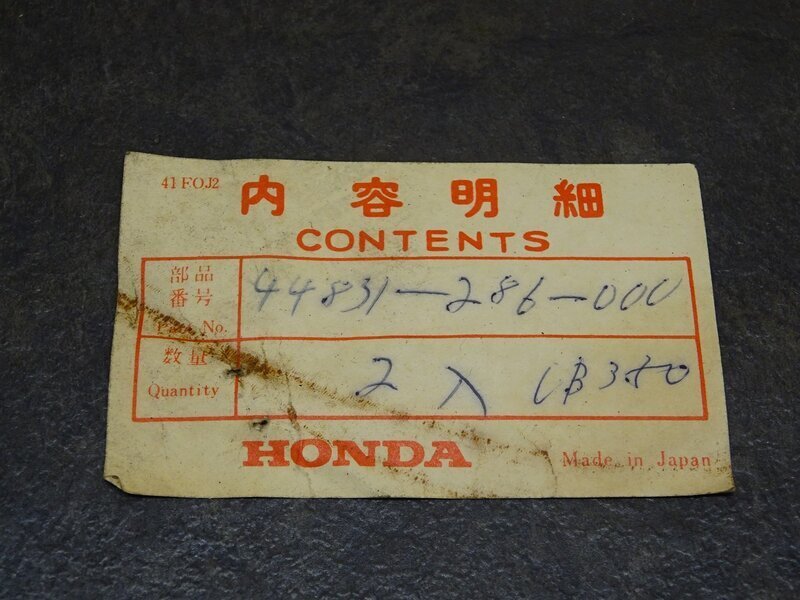 41 FOJ2
内容明細
CONTENTS
部品
番号
Part No.
44831-286-000
数量
Quantity
2入 CB350
HONDA
Made in Japan